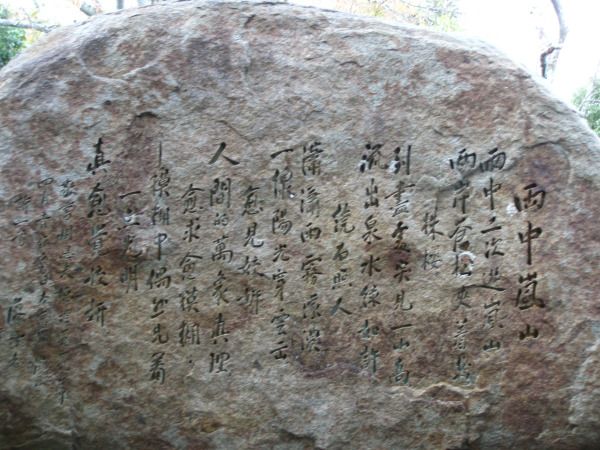 雨中嵐山
雨中二次遊嵐山
两岸蒼松夾着幾
株櫻
到盡處突見一山高
流出泉水綠如許
繞石照人
瀟瀟雨霧濛濃
一線陽光穿雲出
愈見姣妍
人間的萬象真理
愈求愈模糊
模糊中偶然見着
一點光明
真愈覺姣妍